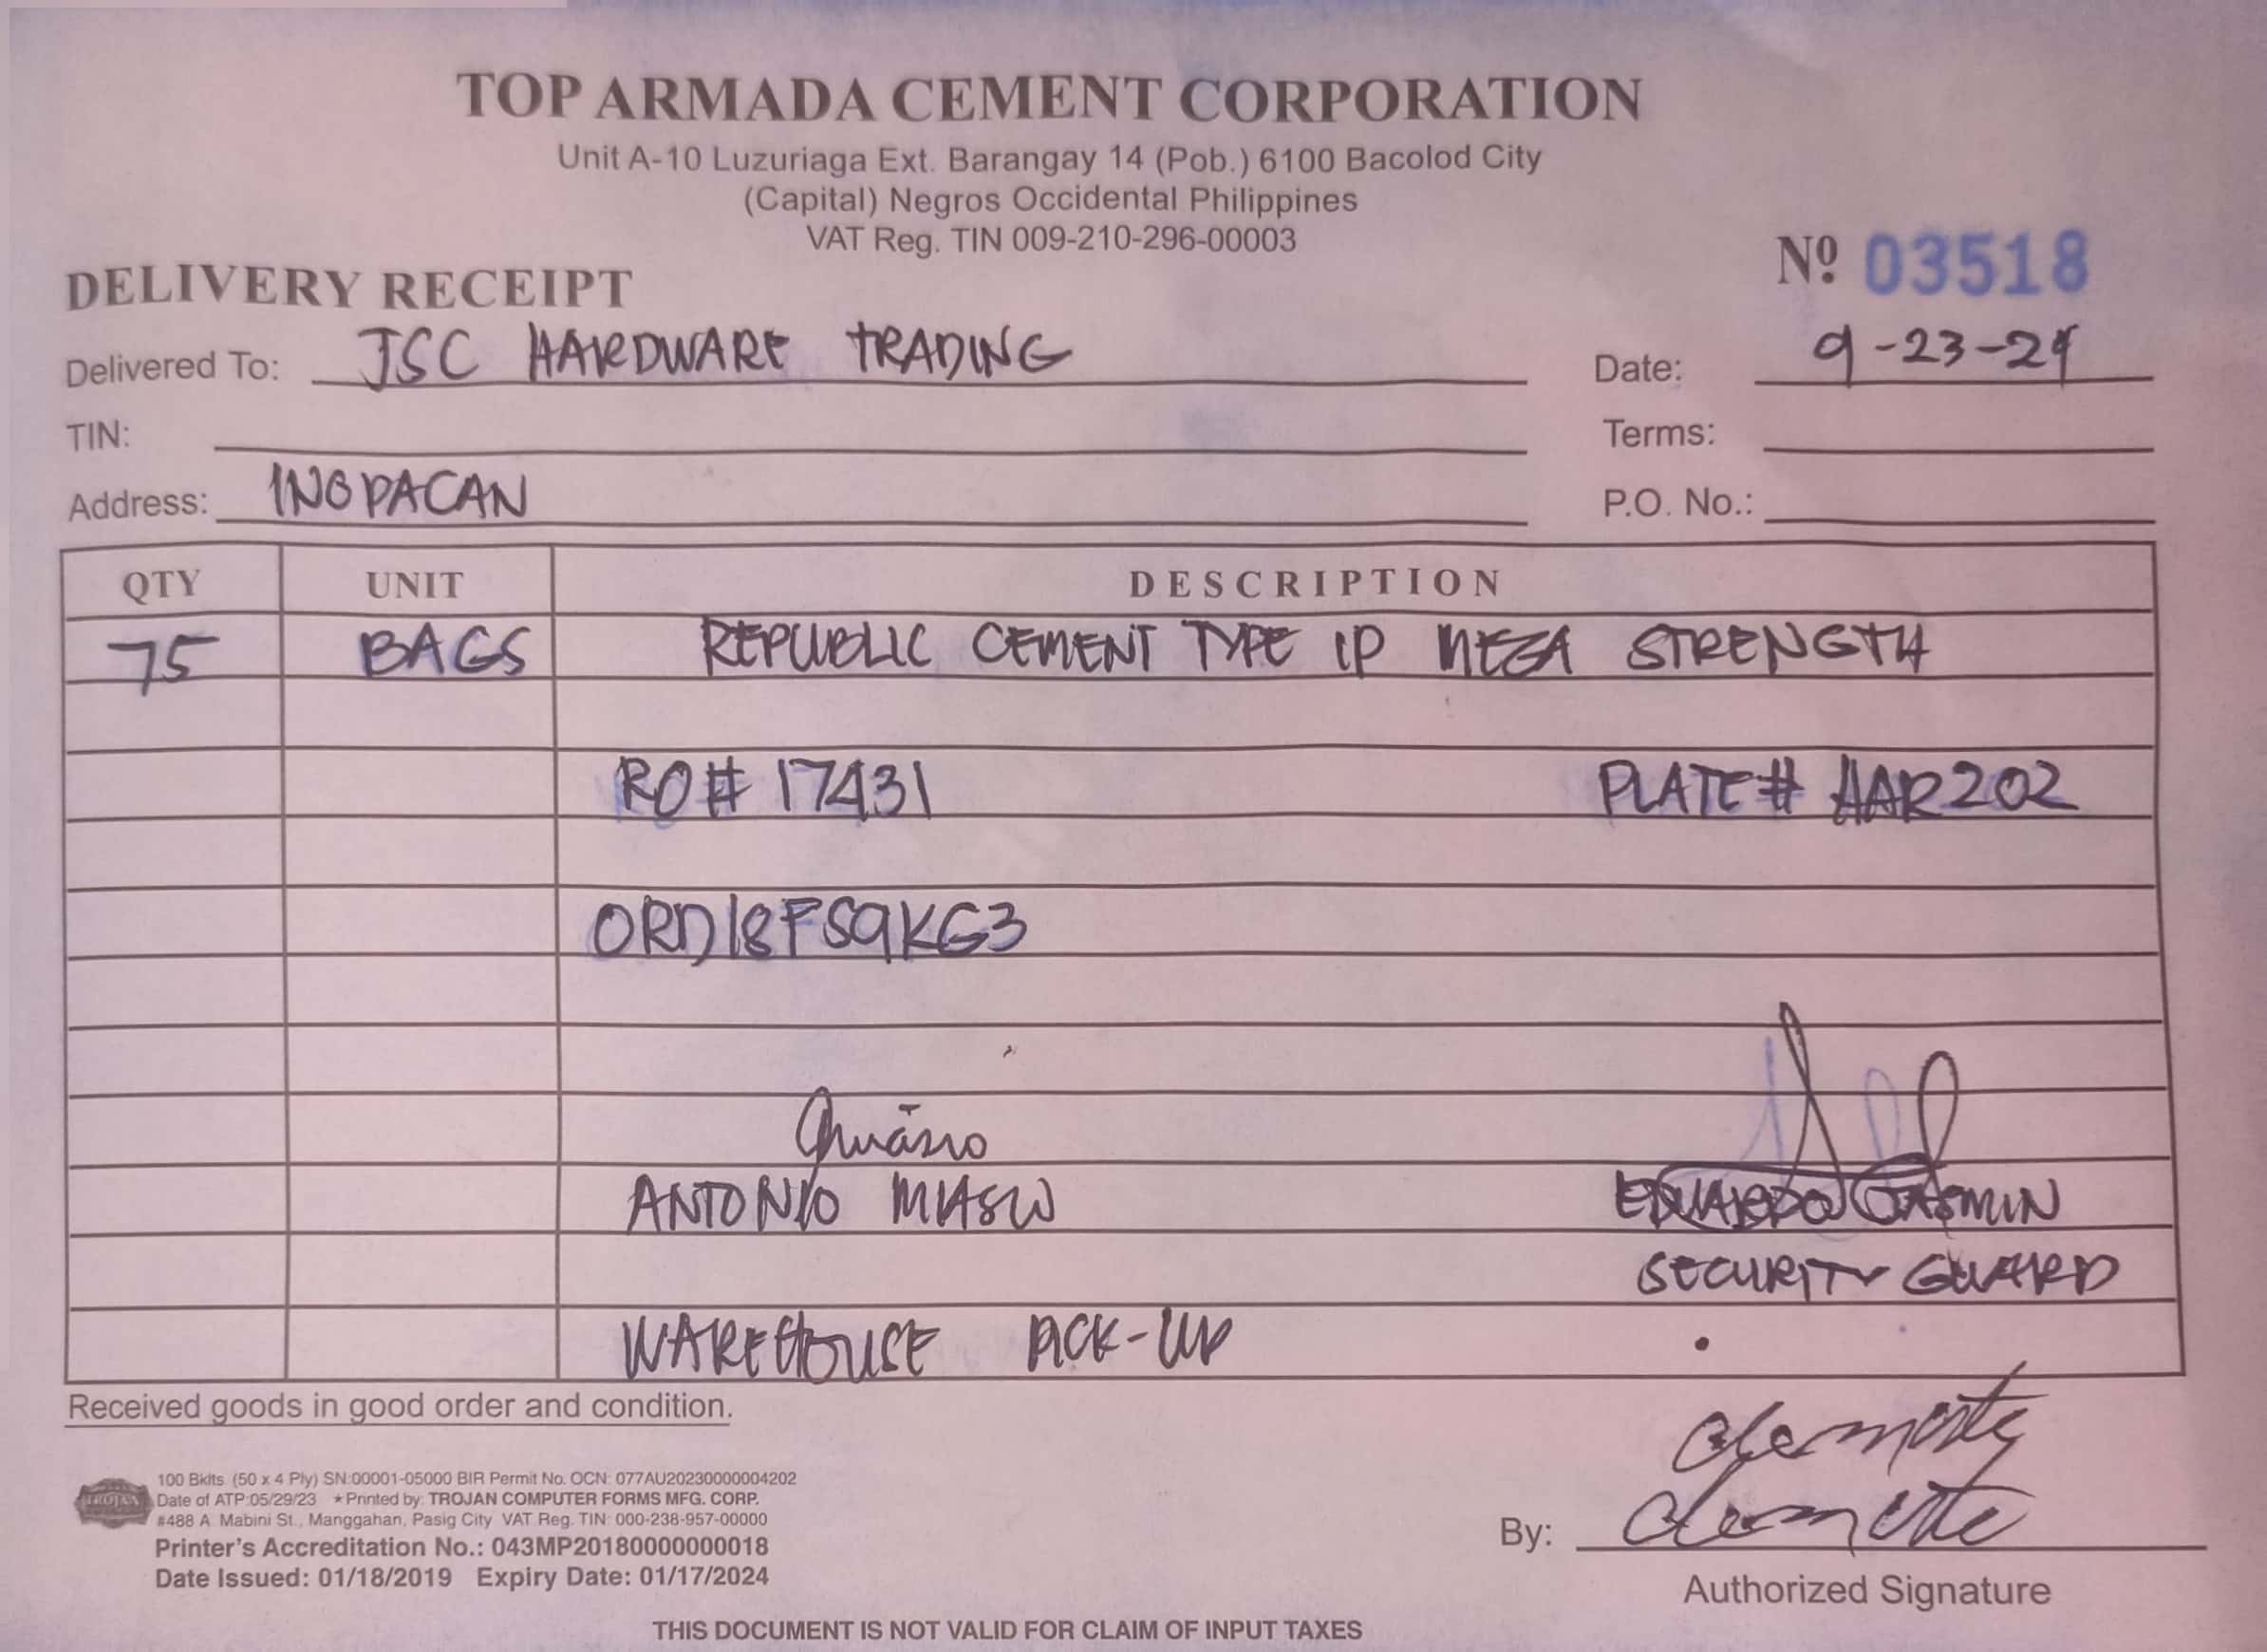 TOP ARMADA CEMENT CORPORATION
Unit A-10 Luzuriaga Ext. Barangay 14 (Pob.) 6100 Bacolod City
(Capital) Negros Occidental Philippines
VAT Reg. TIN 009-210-296-00003
Nº 03518
DELIVERY RECEIPT
Delivered To: JSC HARDWARE TRADING Date: 9-23-24
TIN: Terms:
Address: INOPACAN P.O. No.:
QTY UNIT DESCRIPTION
75 BAGS REPUBLIC CEMENT TYPE 1P MEGA STRENGTH
RO# 17431 PLATE# AAR202
ORD18FS9KG3
ANTONIO EDUARDO JASMIN
SECURITY GUARD
WAREHOUSE PICK-UP
Received goods in good order and condition.
TROJAN
100 Bklts. (50 x 4 Ply) SN:00001-05000 BIR Permit No. OCN: 077AU20230000004202
Date of ATP:05/29/23 ★Printed by: TROJAN COMPUTER FORMS MFG. CORP.
#488 A. Mabini St., Manggahan, Pasig City VAT Reg. TIN: 000-238-957-00000
Printer's Accreditation No.: 043MP20180000000018
Date Issued: 01/18/2019 Expiry Date: 01/17/2024
By:
Authorized Signature
THIS DOCUMENT IS NOT VALID FOR CLAIM OF INPUT TAXES